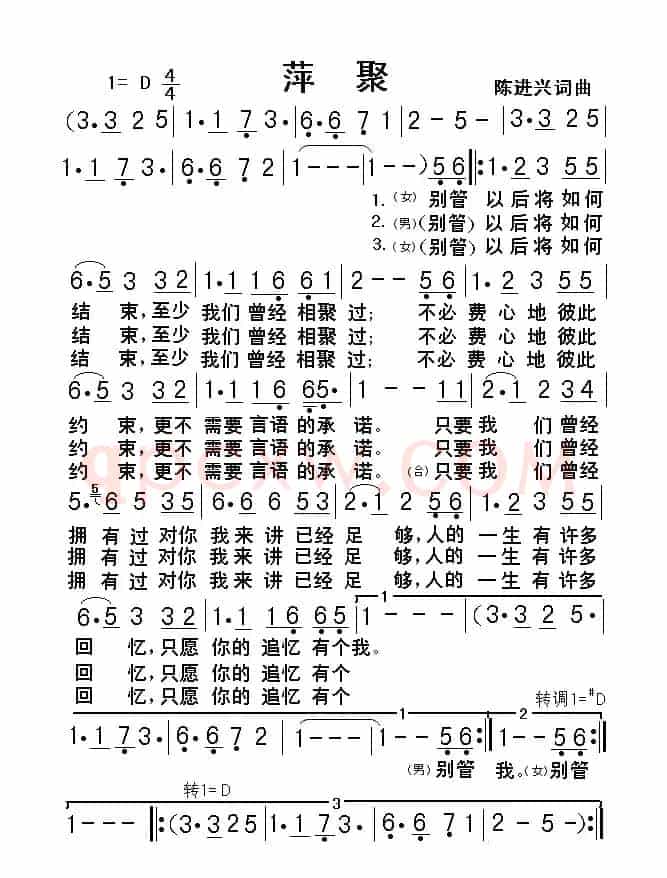 1= D 4/4 萍 聚 陈进兴词曲
(3·3 2 5 | 1·1 7 3· | 6·6 7 1 | 2 - 5 - | 3·3 2 5
1·1 7 3· | 6·6 7 2 | 1 - - - | 1 - - ) 5 6 |: 1·2 3 5 5
1.(女)别管 以后将如何
2.(男)(别管)以后将如何
3.(女)(别管)以后将如何
6·5 3 3 2 | 1·1 1 6 6 1 | 2 - - 5 6 | 1·2 3 5 5
结 束,至少我们曾经相聚过; 不必费心地彼此
结 束,至少我们曾经相聚过; 不必费心地彼此
结 束,至少我们曾经相聚过; 不必费心地彼此
6·5 3 3 2 | 1·1 1 6 6 5· | 1 - - 1 1 | 2·1 2 3 4
约 束,更不需要言语的承诺。 只要我们曾经
约 束,更不需要言语的承诺。 只要我们曾经
约 束,更不需要言语的承诺。(合)只要我们曾经
5·6 5 3 5 | 6·6 6 5 3 | 2·1 2 5 6 | 1·2 3 5 5
拥有过对你我来讲已经足 够,人的一生有许多
拥有过对你我来讲已经足 够,人的一生有许多
拥有过对你我来讲已经足 够,人的一生有许多
6·5 3 3 2 | 1·1 1 6 6 5 | 1 1 - - - | (3·3 2 5
回 忆,只愿你的追忆有个我。
回 忆,只愿你的追忆有个
回 忆,只愿你的追忆有个
转调1=#D
1 2
1·1 7 3· | 6·6 7 2 | 1 - - - | 1 - - 5 6 :| 1 - - 5 6 :|
(男)别管 我。(女)别管
转1=D
3
1 - - - |: (3·3 2 5 | 1·1 7 3· | 6·6 7 1 | 2 - 5 - ) :|
qpcxw.com